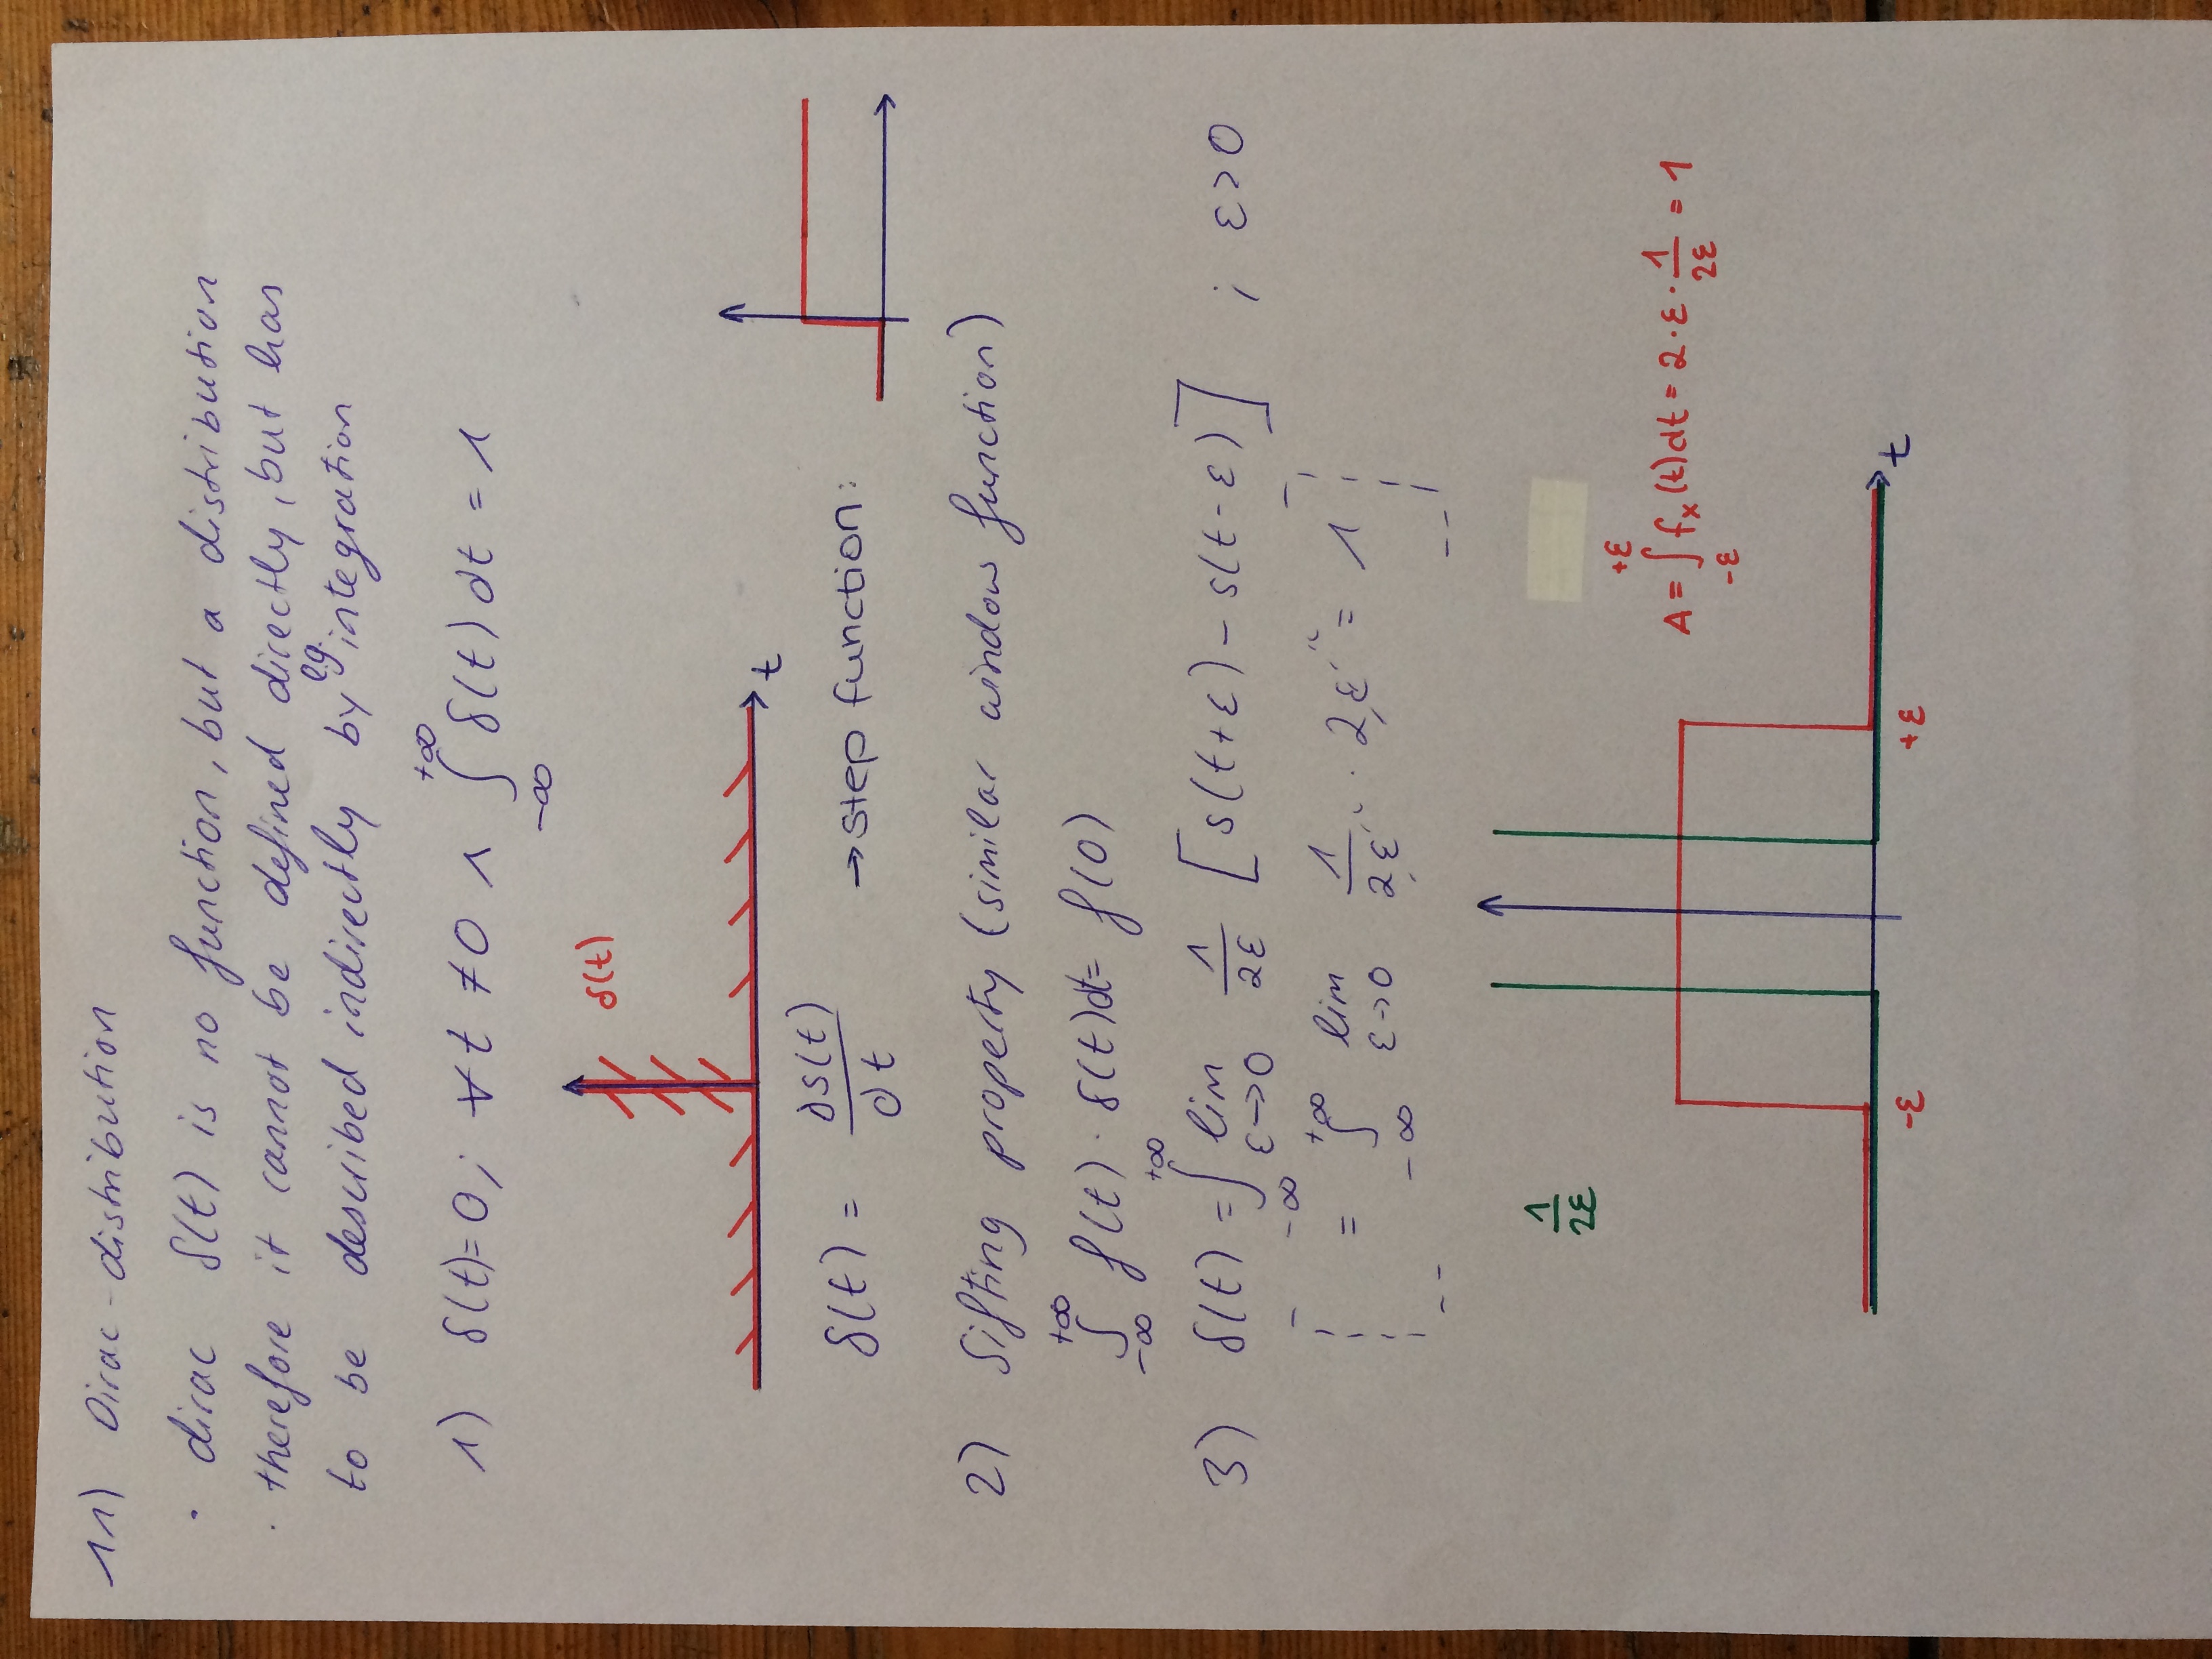 11) Dirac-distribution
· dirac δ(t) is no function, but a distribution
· therefore it cannot be defined directly, but has
to be described indirectly by e.g. integration
1) δ(t)=0; ∀t ≠0 ∧ ∫_{-∞}^{+∞} δ(t) dt = 1
δ(t)
t
δ(t) = ds(t)/dt → step function:
2) Sifting property (similar window function)
∫_{-∞}^{+∞} f(t) · δ(t)dt = f(0)
3) δ(t) = ∫_{-∞}^{+∞} lim_{ε→0} 1/2ε [s(t+ε) - s(t-ε)] ; ε>0
= ∫_{-∞}^{+∞} lim_{ε→0} 1/"2ε" · "2ε" = 1
1/2ε
A = ∫_{-ε}^{+ε} fₓ(t)dt = 2·ε·1/2ε = 1
-ε +ε t